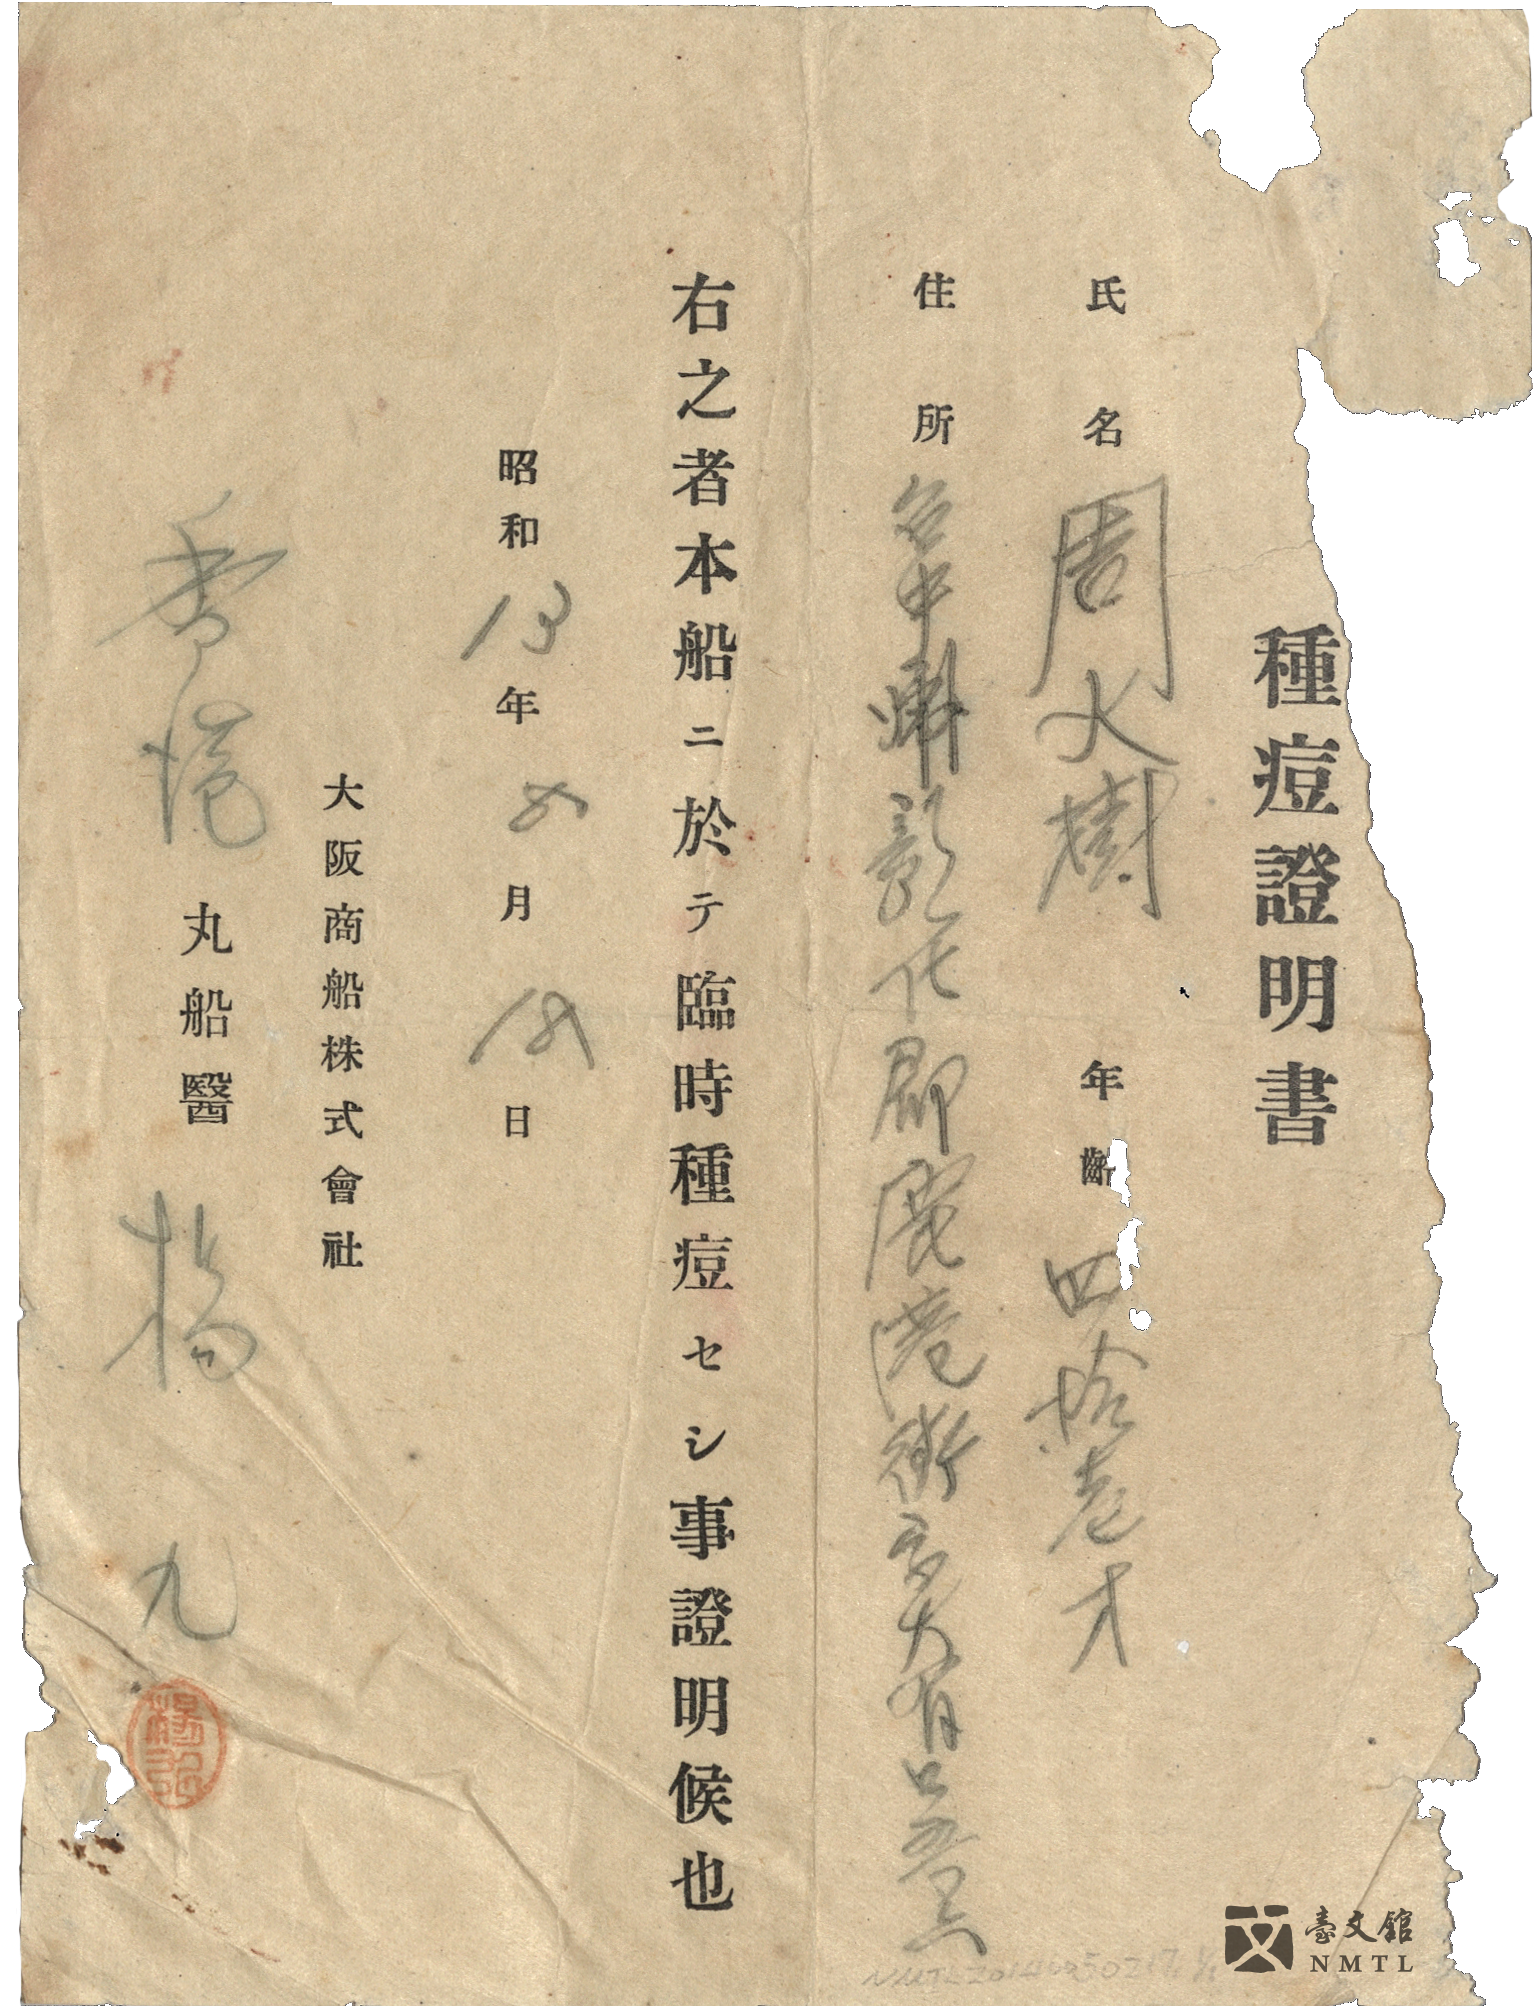 種痘證明書
氏名 周火樹 年齡 四拾壱才
住所 台中州彰化郡鹿港街字大有口
右之者本船ニ於テ臨時種痘セシ事證明候也
昭和13年8月18日
大阪商船株式會社
香港丸船醫 楊九
臺文館
NMTL